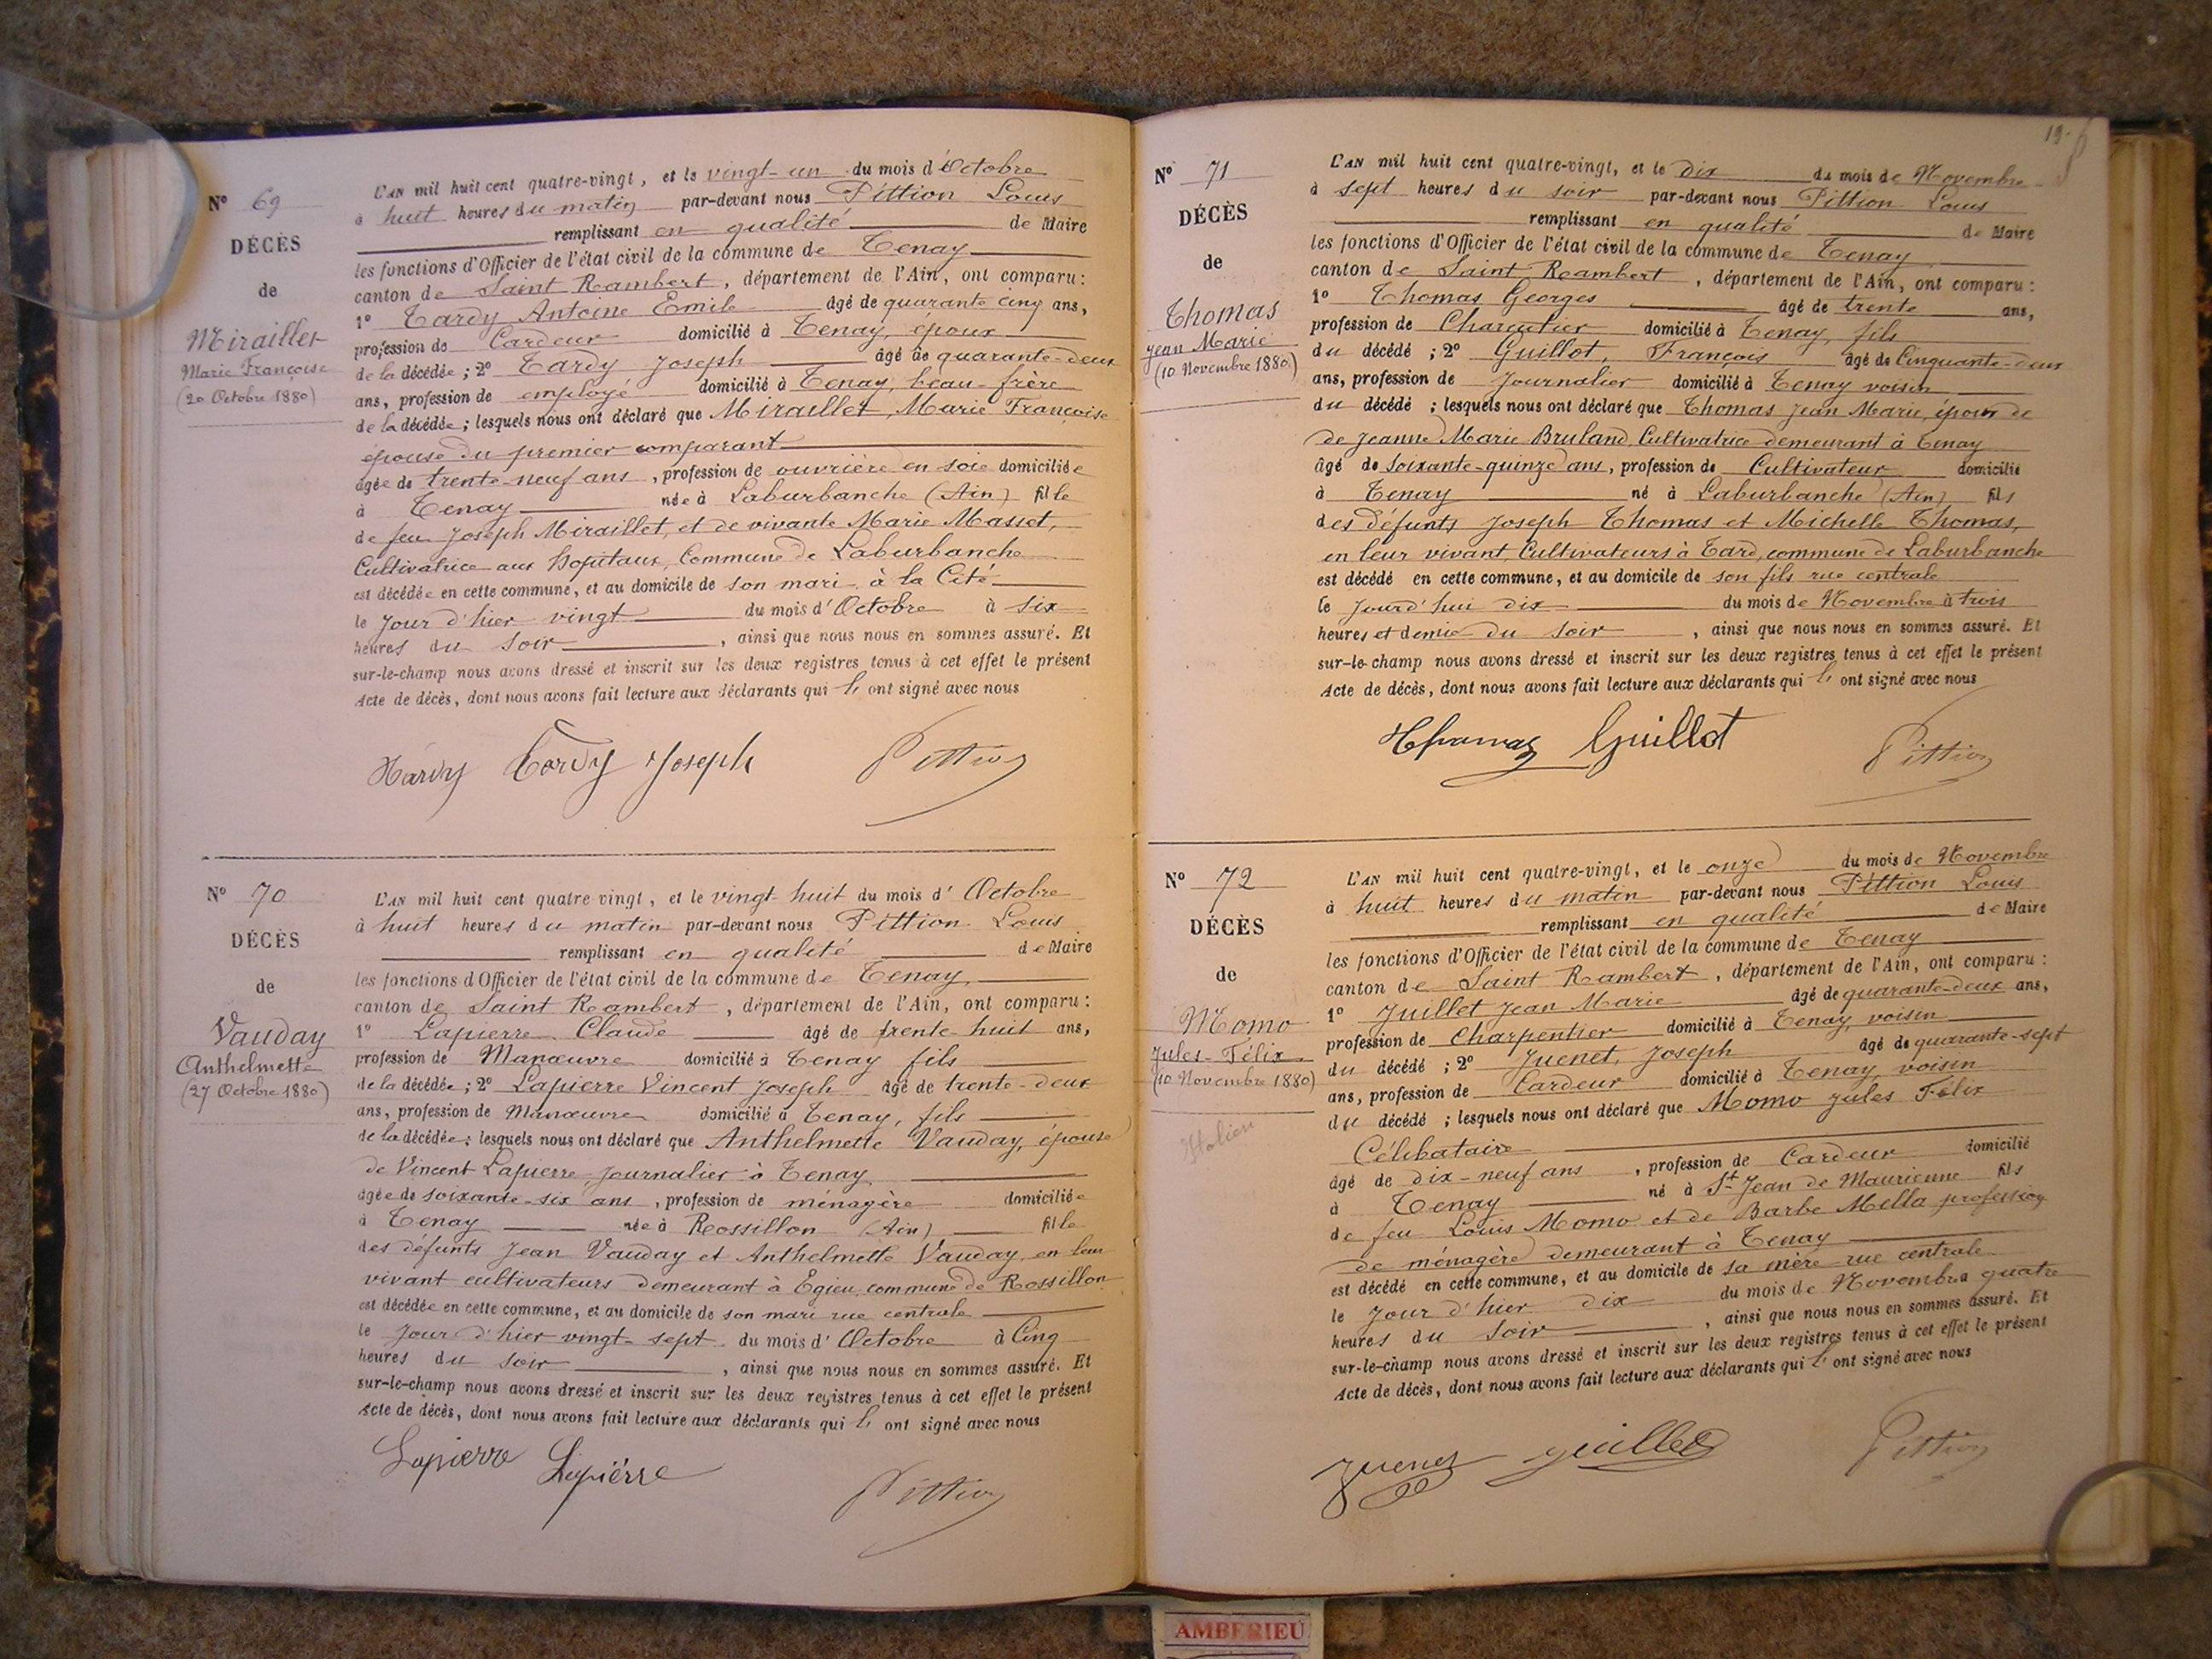 N° 69
DÉCÈS
de
Miraillet
Marie Françoise
(20 Octobre 1880)
L'AN mil huit cent quatre-vingt, et le vingt-un du mois d'Octobre
à huit heures du matin par-devant nous Pittion Louis
remplissant en qualité de Maire
les fonctions d'Officier de l'état civil de la commune de Tenay
canton de Saint Rambert, département de l'Ain, ont comparu:
1° Tardy Antoine Emile âgé de quarante cinq ans,
profession de Cardeur domicilié à Tenay, époux
de la décédée; 2° Tardy Joseph âgé de quarante-deux
ans, profession de employé domicilié à Tenay, beau-frère
de la décédée; lesquels nous ont déclaré que Miraillet, Marie Françoise
épouse du premier comparant
âgée de trente-neuf ans, profession de ouvrière en soie domiciliée
à Tenay née à Laburbanche (Ain) fille
de feu Joseph Miraillet, et de vivante Marie Masset,
Cultivatrice aux hopitaux, Commune de Laburbanche
est décédée en cette commune, et au domicile de son mari à la Cité
le jour d'hier vingt du mois d'Octobre à six
heures du soir, ainsi que nous nous en sommes assuré. Et
sur-le-champ nous avons dressé et inscrit sur les deux registres tenus à cet effet le présent
Acte de décès, dont nous avons fait lecture aux déclarants qui l' ont signé avec nous
Tardy Tardy Joseph Pittion
N° 70
DÉCÈS
de
Vauday
Anthelmette
(27 Octobre 1880)
L'AN mil huit cent quatre vingt, et le vingt-huit du mois d' Octobre
à huit heures du matin par-devant nous Pittion Louis
remplissant en qualité de Maire
les fonctions d'Officier de l'état civil de la commune de Tenay
canton de Saint Rambert, département de l'Ain, ont comparu:
1° Lapierre Claude âgé de trente-huit ans,
profession de Manœuvre domicilié à Tenay fils
de la décédée; 2° Lapierre Vincent Joseph âgé de trente-deux
ans, profession de Manœuvre domicilié à Tenay, fils
de la décédée; lesquels nous ont déclaré que Anthelmette Vauday, épouse
de Vincent Lapierre, journalier à Tenay
âgée de soixante-six ans, profession de ménagère domiciliée
à Tenay née à Rossillon (Ain) fille
des défunts Jean Vauday et Anthelmette Vauday, en leur
vivant cultivateurs demeurant à Egieu, commune de Rossillon
est décédée en cette commune, et au domicile de son mari rue centrale
le jour d'hier vingt-sept du mois d'Octobre à Cinq
heures du soir, ainsi que nous nous en sommes assuré. Et
sur-le-champ nous avons dressé et inscrit sur les deux registres tenus à cet effet le présent
Acte de décès, dont nous avons fait lecture aux déclarants qui l' ont signé avec nous
Lapierre Lapierre Pittion
19
N° 71
DÉCÈS
de
Thomas
Jean Marie
(10 Novembre 1880)
L'AN mil huit cent quatre-vingt, et le dix du mois de Novembre
à sept heures du soir par-devant nous Pittion Louis
remplissant en qualité de Maire
les fonctions d'Officier de l'état civil de la commune de Tenay
canton de Saint Rambert, département de l'Ain, ont comparu:
1° Thomas Georges âgé de trente ans,
profession de Charcutier domicilié à Tenay, fils
du décédé; 2° Guillot, François âgé de Cinquante-deux
ans, profession de Journalier domicilié à Tenay voisin
du décédé; lesquels nous ont déclaré que Thomas Jean Marie, époux de
de Jeanne Marie Bruland, Cultivatrice demeurant à Tenay
âgé de soixante-quinze ans, profession de Cultivateur domicilié
à Tenay né à Laburbanche (Ain) fils
des défunts Joseph Thomas et Michelle Thomas,
en leur vivant, Cultivateurs à Tard, commune de Laburbanche
est décédé en cette commune, et au domicile de son fils rue centrale
le jourd'hui dix du mois de Novembre à trois
heures et demie du soir, ainsi que nous nous en sommes assuré. Et
sur-le-champ nous avons dressé et inscrit sur les deux registres tenus à cet effet le présent
Acte de décès, dont nous avons fait lecture aux déclarants qui l' ont signé avec nous
Thomas Guillot Pittion
N° 72
DÉCÈS
de
Momo
Jules-Félix
(10 Novembre 1880)
Italien
L'AN mil huit cent quatre-vingt, et le onze du mois de Novembre
à huit heures du matin par-devant nous Pittion Louis
remplissant en qualité de Maire
les fonctions d'Officier de l'état civil de la commune de Tenay
canton de Saint Rambert, département de l'Ain, ont comparu:
1° Juillet Jean Marie âgé de quarante-deux ans,
profession de Charpentier domicilié à Tenay, voisin
du décédé; 2° Juenet, Joseph âgé de quarante-sept
ans, profession de Cardeur domicilié à Tenay, voisin
du décédé; lesquels nous ont déclaré que Momo Jules Félix
Célibataire
âgé de dix-neuf ans, profession de Cardeur domicilié
à Tenay né à St Jean de Maurienne fils
de feu Louis Momo et de Barbe Mella profession
de ménagère demeurant à Tenay
est décédé en cette commune, et au domicile de sa mère rue centrale
le jour d'hier dix du mois de Novembre à quatre
heures du soir, ainsi que nous nous en sommes assuré. Et
sur-le-champ nous avons dressé et inscrit sur les deux registres tenus à cet effet le présent
Acte de décès, dont nous avons fait lecture aux déclarants qui l' ont signé avec nous
Juenet Juillet Pittion
AMBERIEU